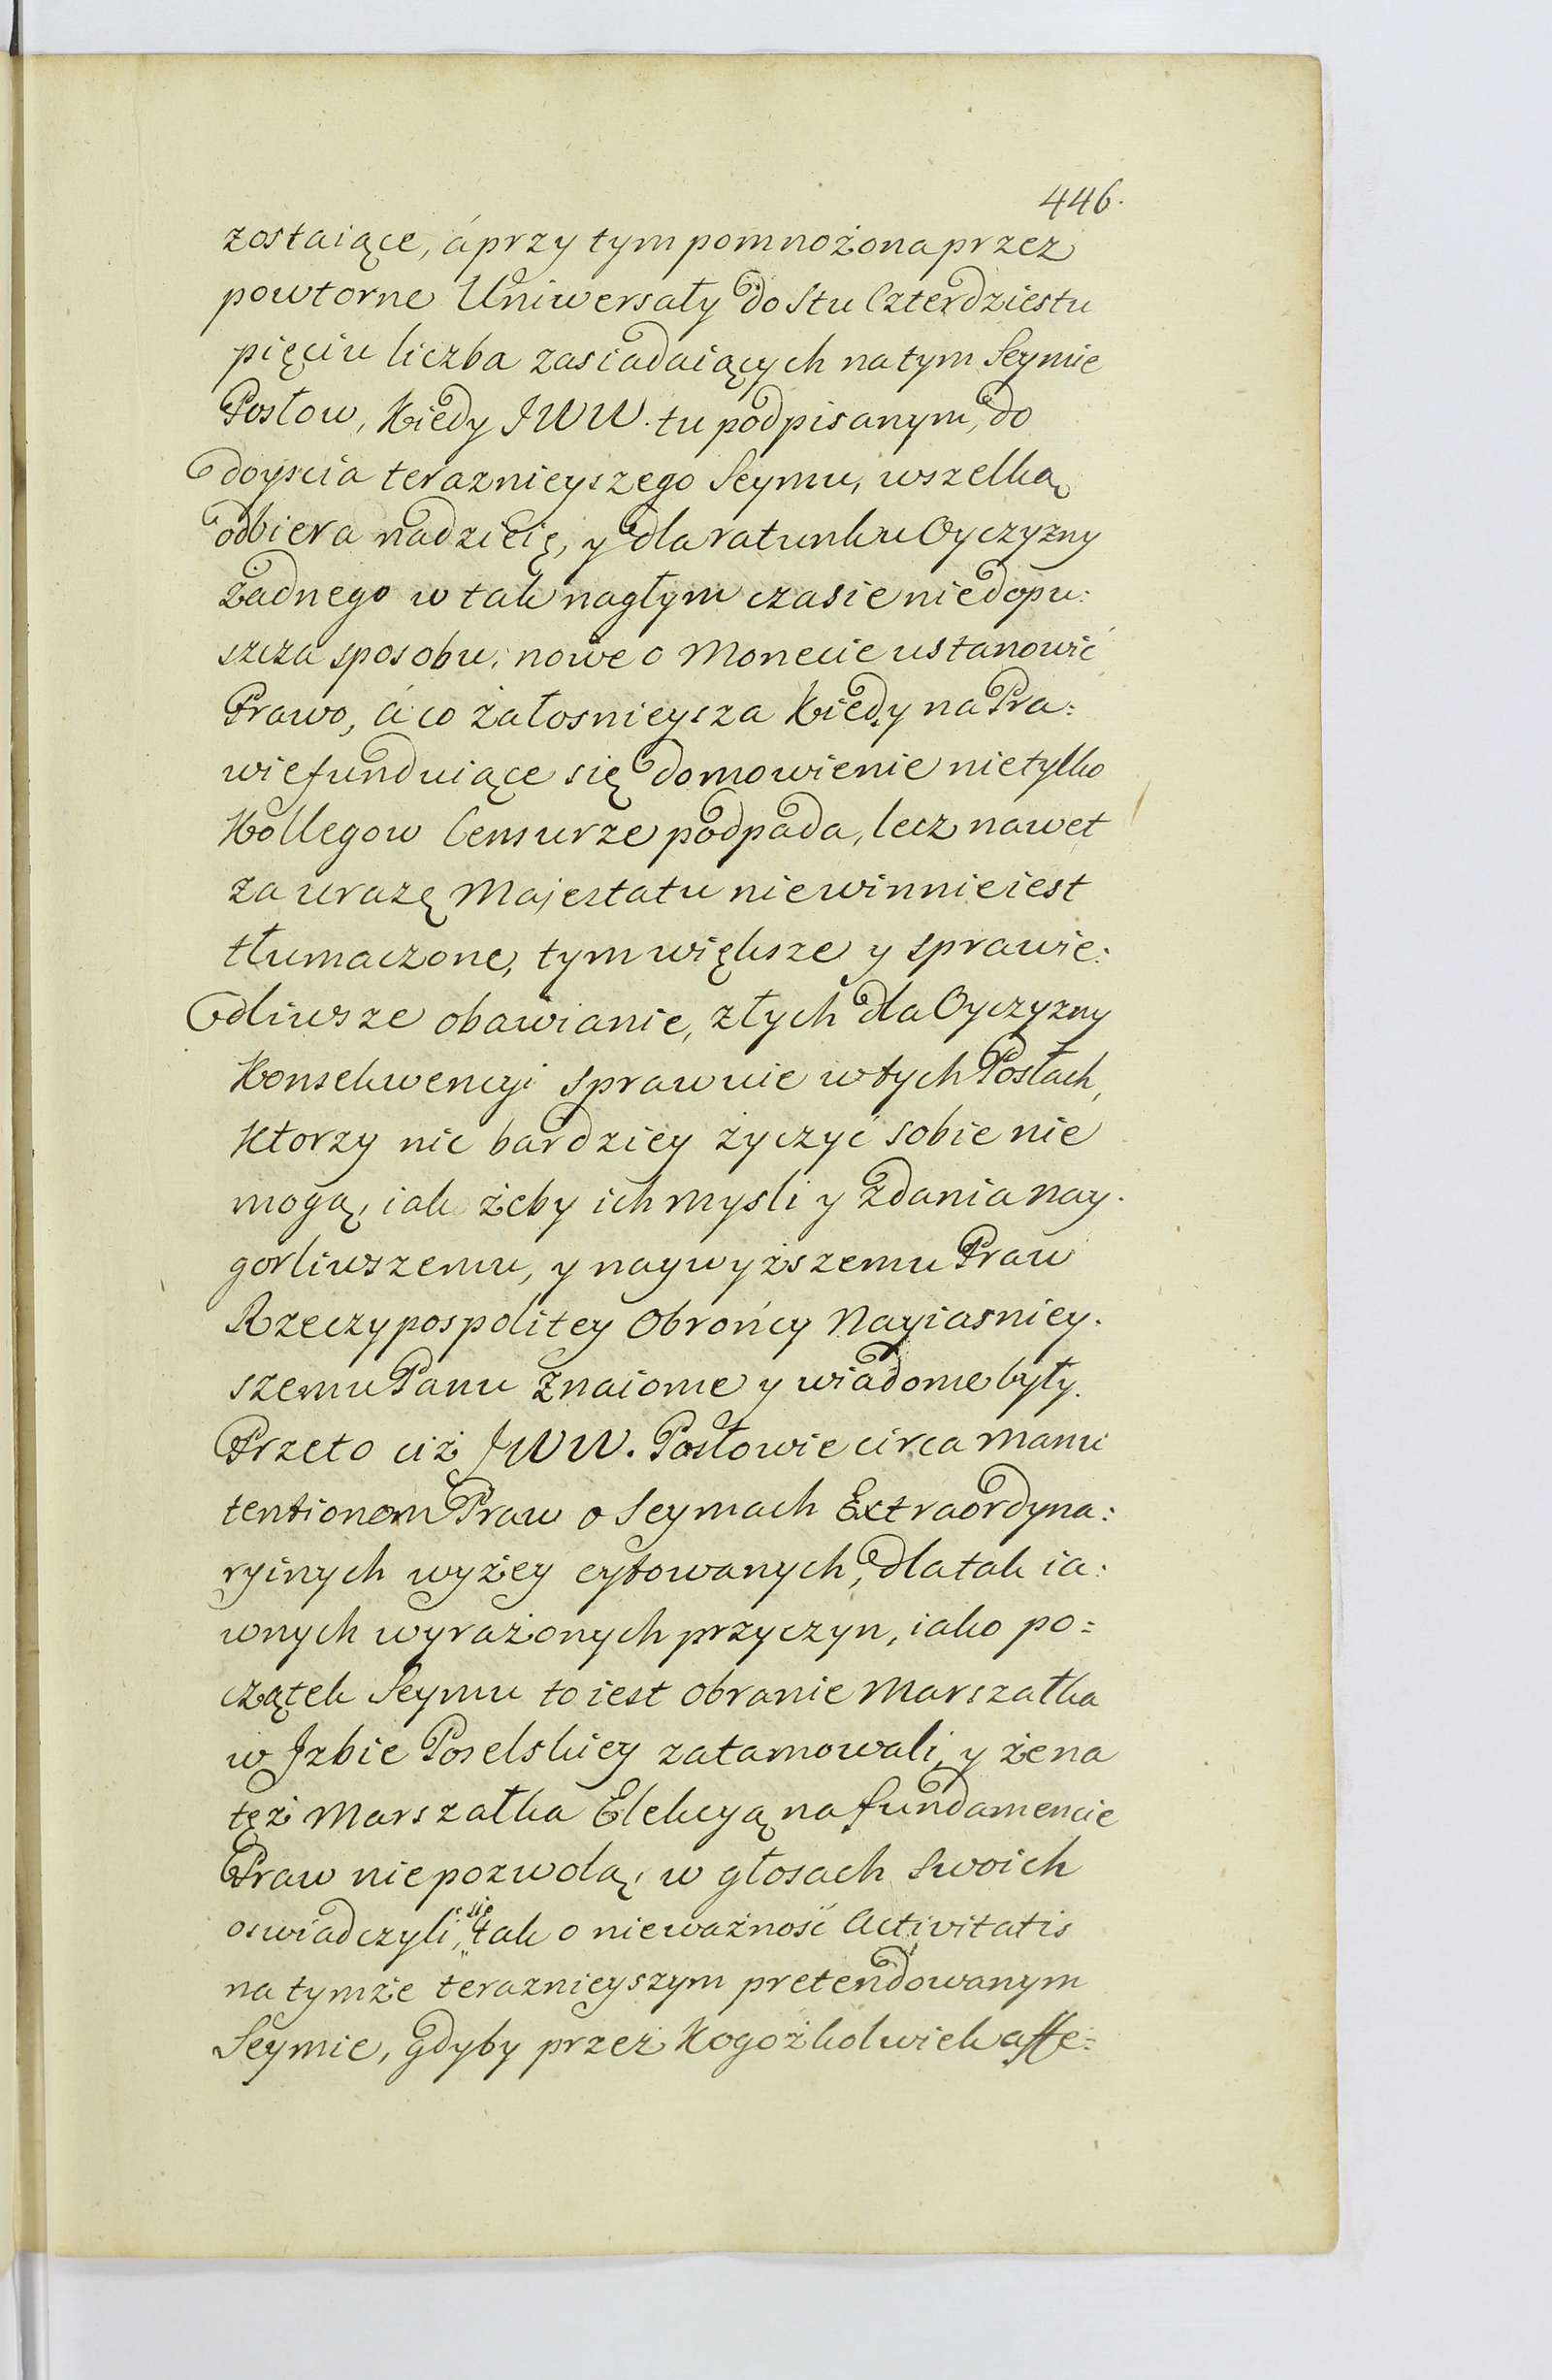 446.
zostaiące, á przy tym pomnożona przez
powtorne Uniwersały do Stu Czterdziestu
pięciu liczba zasiadaiących na tym Seymie
Posłow, kiedy JWW. tu podpisanym, do
doyscia teraznieyszego Seymu, wszelką
odbiera nadzieię, y dla ratunku Oyczyzny
żadnego w tak nagłym czasie niedopu:
szcza sposobu, nowe o Monecie ustanowić
Prawo, á co żałosnieysza kiedy na Pra:
wie funduiące się domowienie nietylko
Kollegow Censurze podpada, lecz nawet
za urazę Majestatu niewinnie iest
tłumaczone, tym większe y sprawie:
dliwsze obawianie, złych dla Oyczyzny
Konsekwencyi sprawuie w tych Posłach,
Ktorzy nic bardziey życzyć sobie nie
mogą, iak żeby ich mysli y zdania nay.
gorliwszemu, y naywyższemu Praw
Rzeczypospolitey Obrońcy Nayiasniey.
szemu Panu znaiome y wiadome były.
Przeto ciż JWW. Posłowie circa manu
tentionem Praw o Seymach Extraordyna:
ryinych wyżey cytowanych, dla tak ia:
wnych wyrażonych przyczyn, iako po=
czątek Seymu to iest obranie Marszałka
w Izbie Poselskiey zatamowali, y że na
tęż Marszałka Elekcyą na fundamencie
Praw niepozwolą, w głosach swoich
oswiadczyli się, tak o nieważność Activitatis
na tymże teraznieyszym pretendowanym
Seymie, gdyby przez Kogożkolwiek affe=